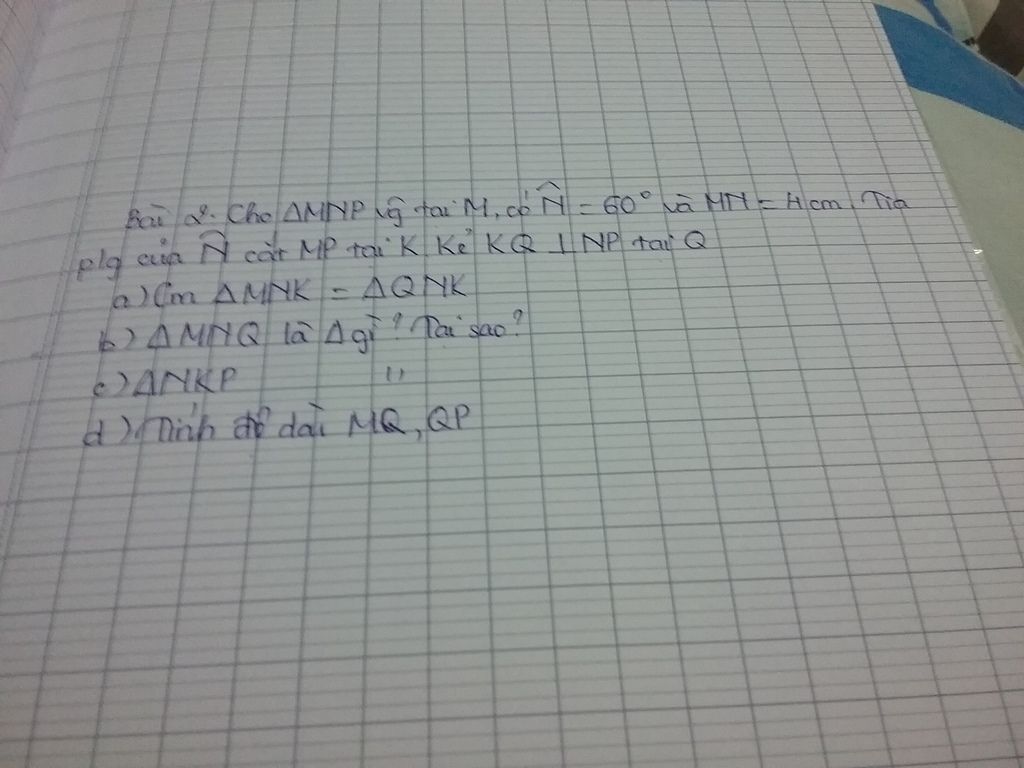 Bài 2. Cho ΔMNP vg tại M, có N̂ = 60° và MN = 4cm. Tia
p/g của N̂ cắt MP tại K. Kẻ KQ ⊥ NP tại Q
a) Cm ΔMNK = ΔQNK
b) ΔMNQ là Δ gì? Tại sao?
c) ΔNKP "
d) Tính độ dài MQ, QP